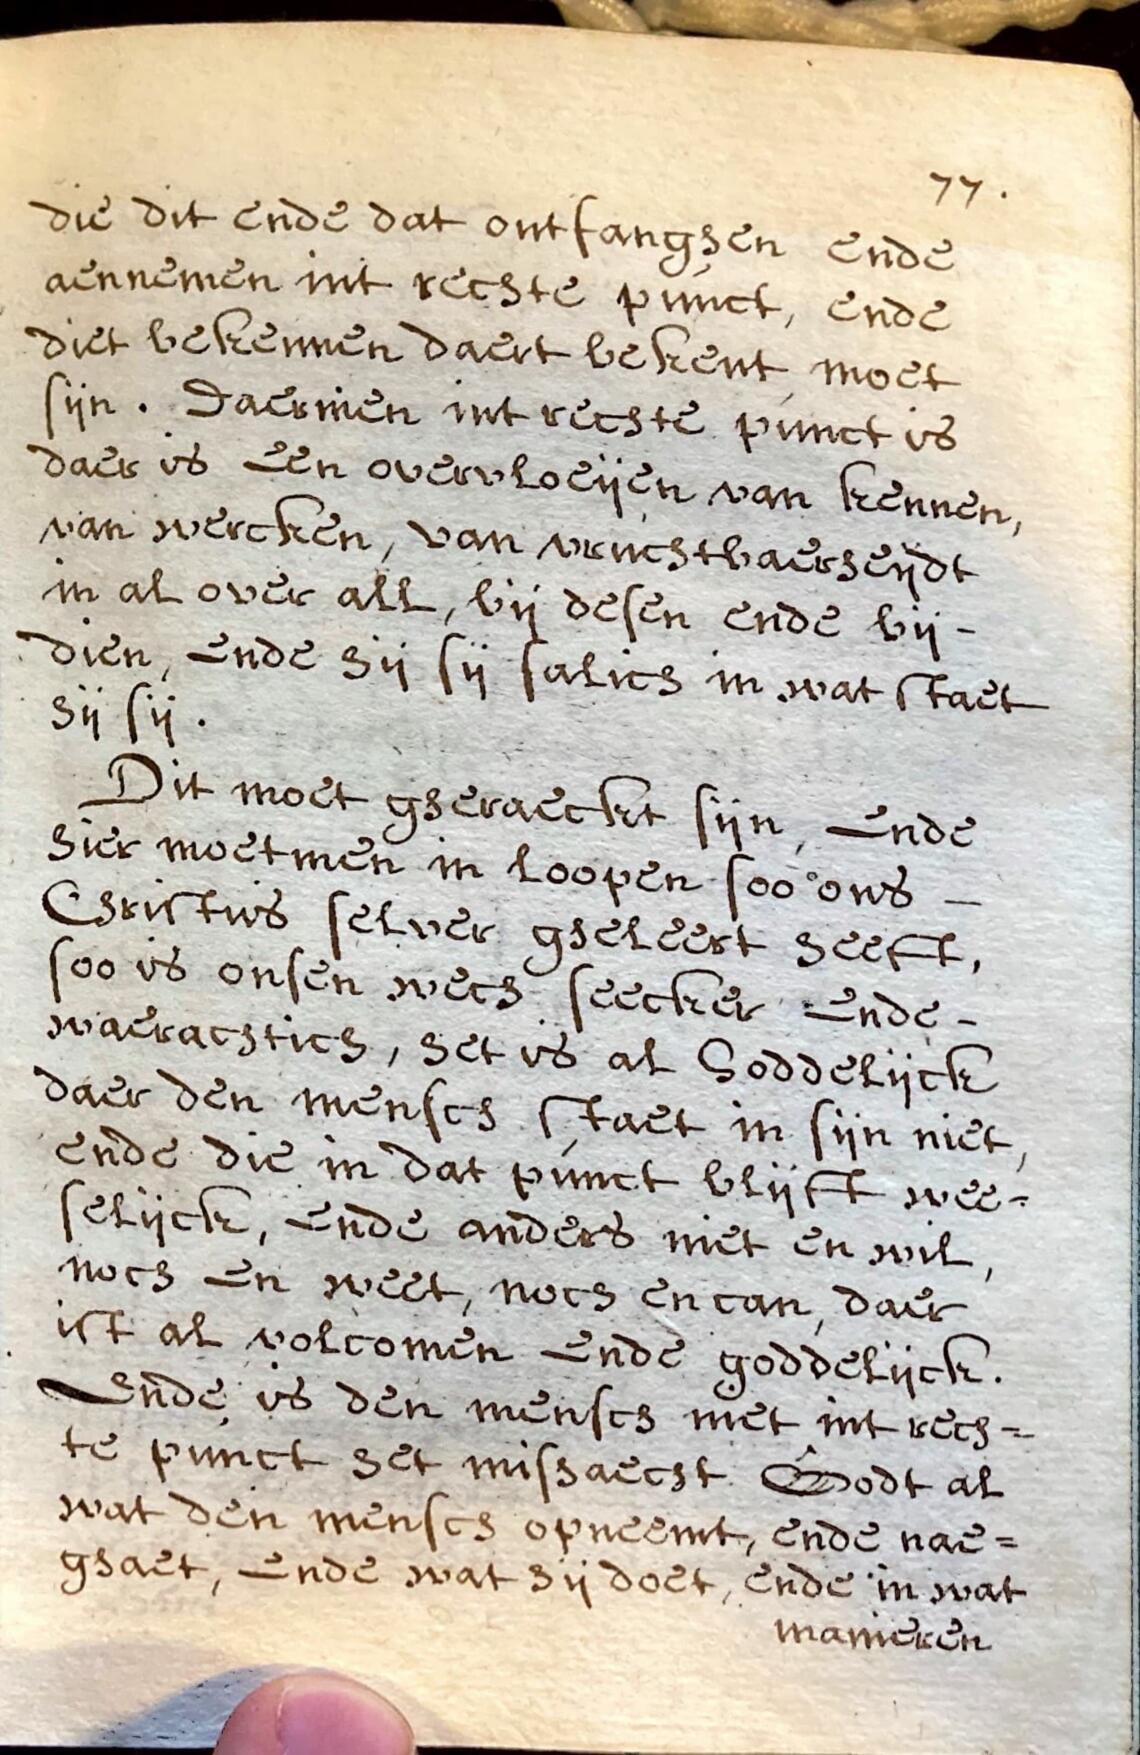 77.
die dit ende dat ontfanghen ende
aennemen int rechte punct, ende
diet bekennen daert bekent moet
sijn. Daermen int rechte punct is
daer is een overvloeijen van kennen,
van wercken, van vruchtbaerheijdt
in al over all, bij desen ende bij-
dien, ende hij sij salich in wat staet
hij sij.
Dit moet gheraeckt sijn, ende
hier moetmen in loopen soo ons -
Christus selver gheleert heeft,
soo is onsen wech seecker ende -
waerachtich, het is al Goddelijck
daer den mensch staet in sijn niet,
ende die in dat punct blijft wee=
selijck, ende anders niet en wil,
noch en weet, noch en can, daer
ist al volcomen ende goddelijck.
Ende is den mensch niet int rech=
te punct het mishaecht Godt al
wat den mensch opneemt, ende nae=
ghaet, ende wat hij doet, ende in wat
manieren